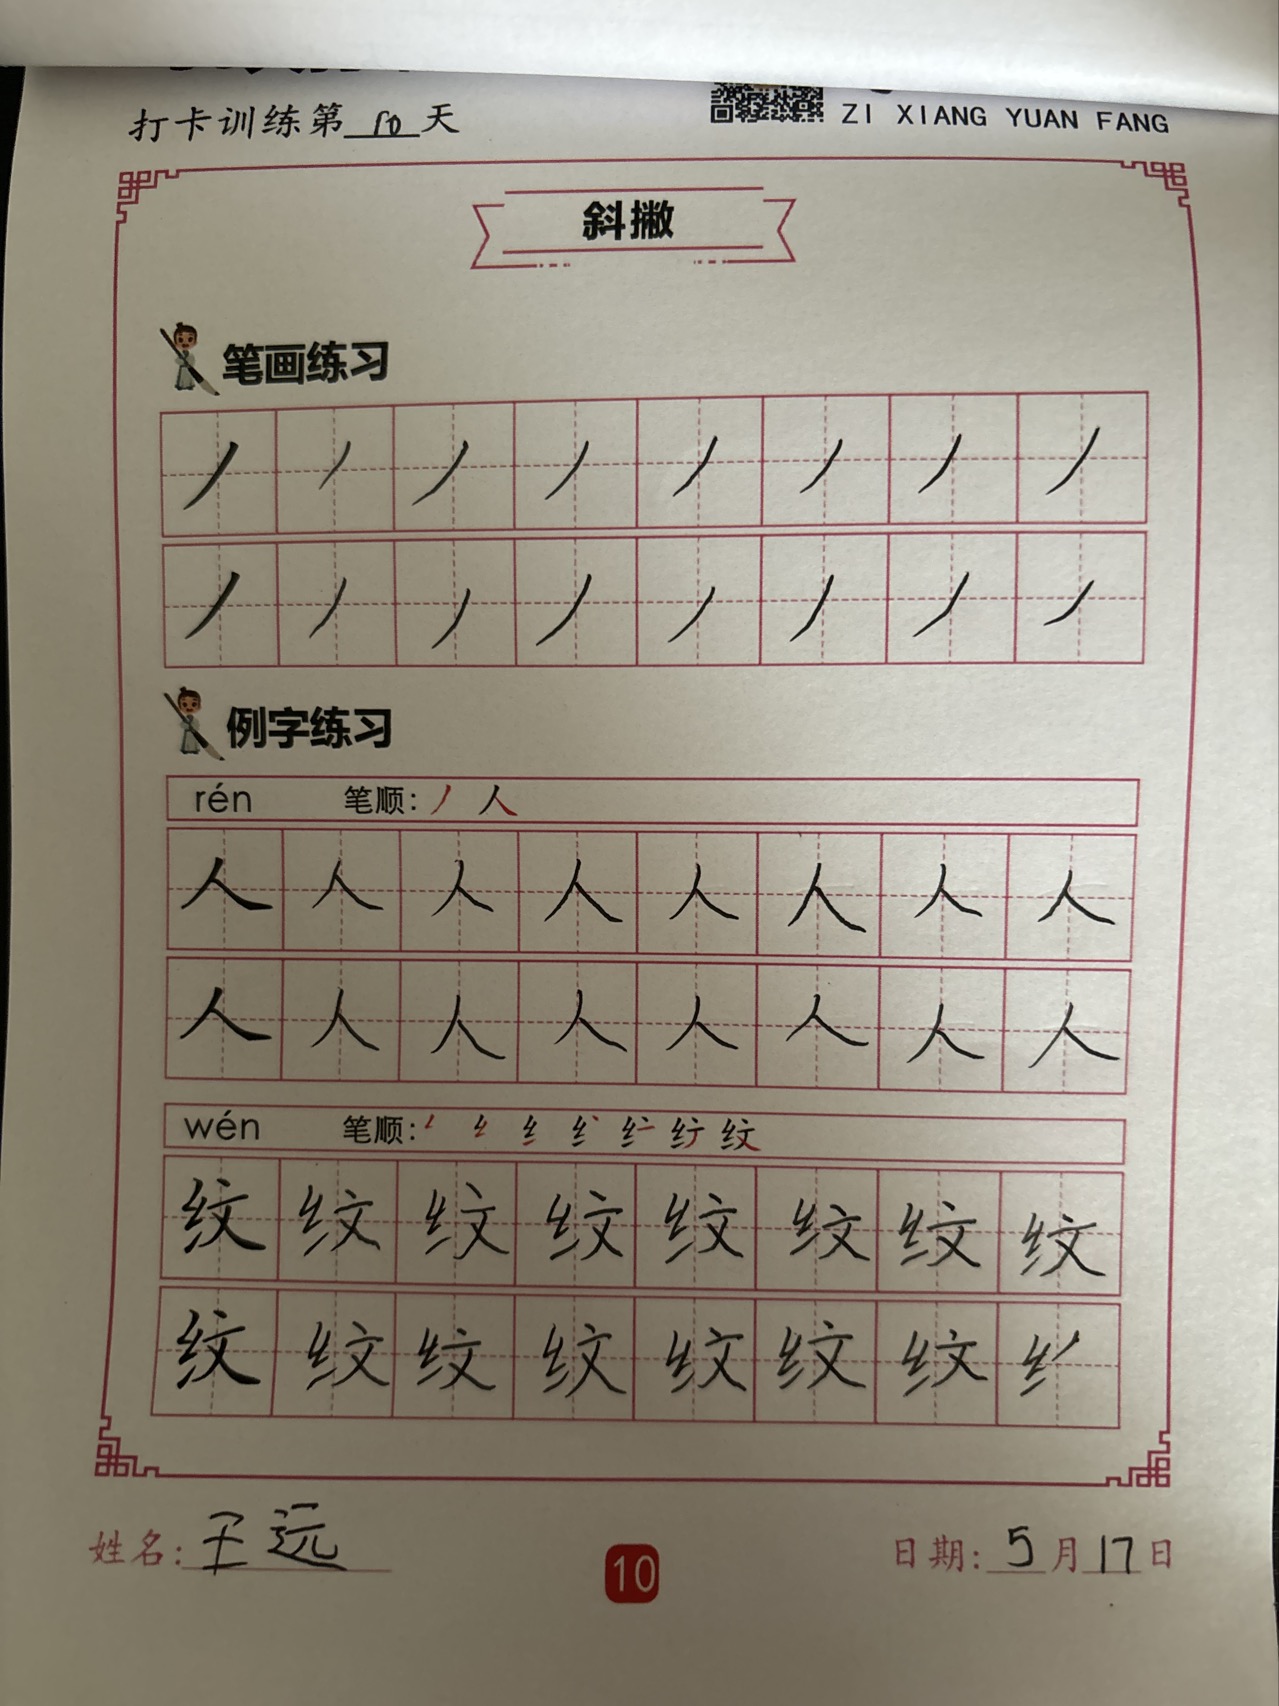 打卡训练第10天
ZI XIANG YUAN FANG
斜撇
笔画练习
丿 丿 丿 丿 丿 丿 丿 丿
丿 丿 丿 丿 丿 丿 丿 丿
例字练习
rén 笔顺: 丿 人
人 人 人 人 人 人 人 人
人 人 人 人 人 人 人 人
wén 笔顺: 纹
纹 纹 纹 纹 纹 纹 纹 纹
纹 纹 纹 纹 纹 纹 纹 纟
姓名: 王远
10
日期: 5月17日